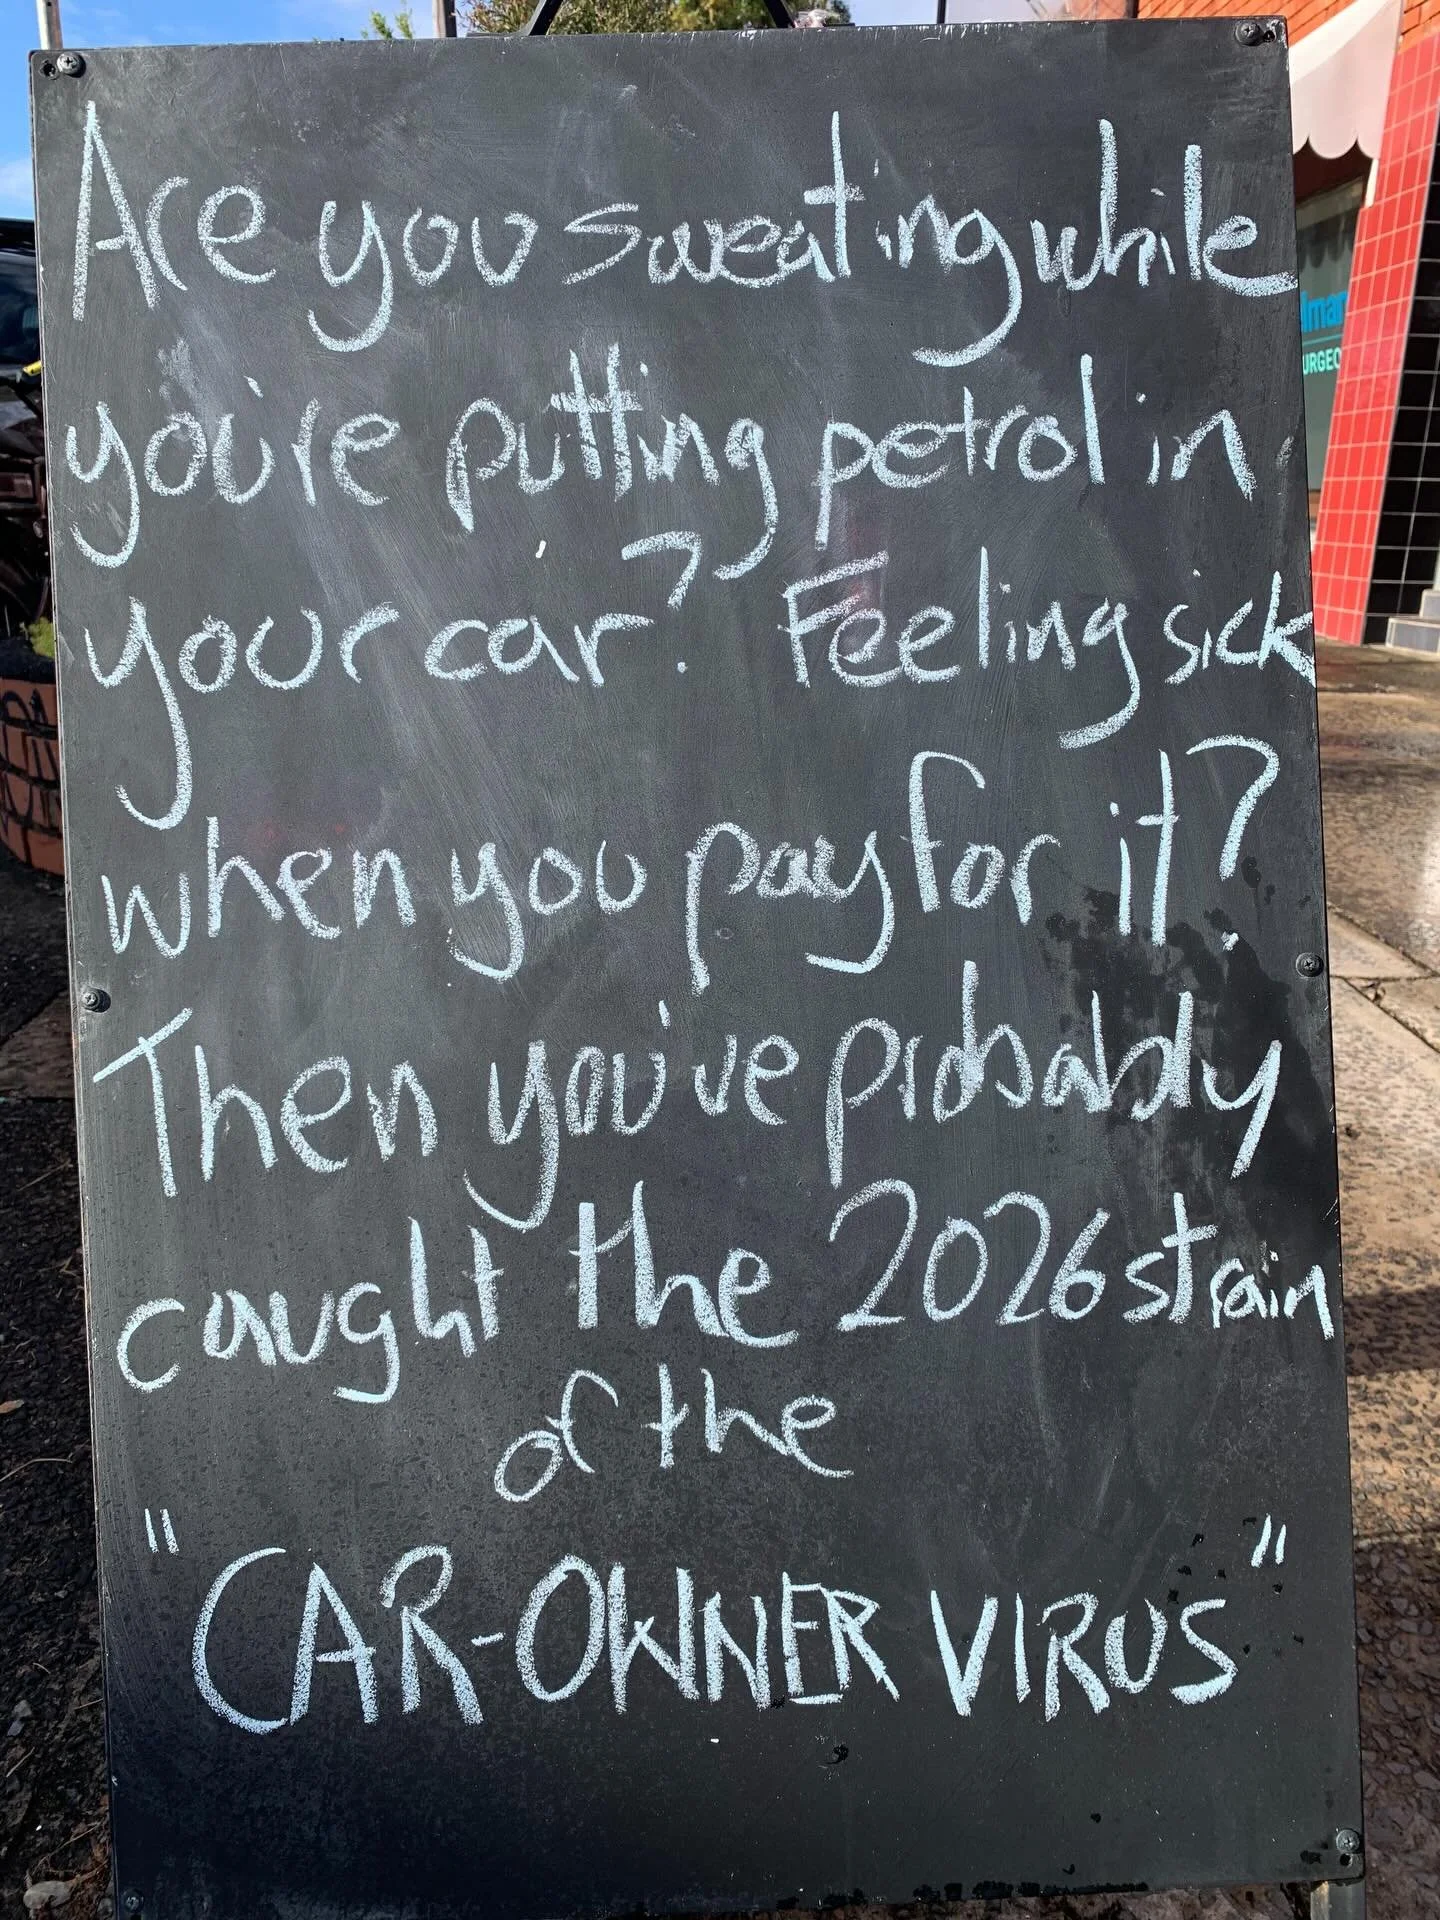 Are you sweating while
you're putting petrol in
your car? Feeling sick
when you pay for it?
Then you've probably
caught the 2026 strain
of the
"CAR-OWNER VIRUS"